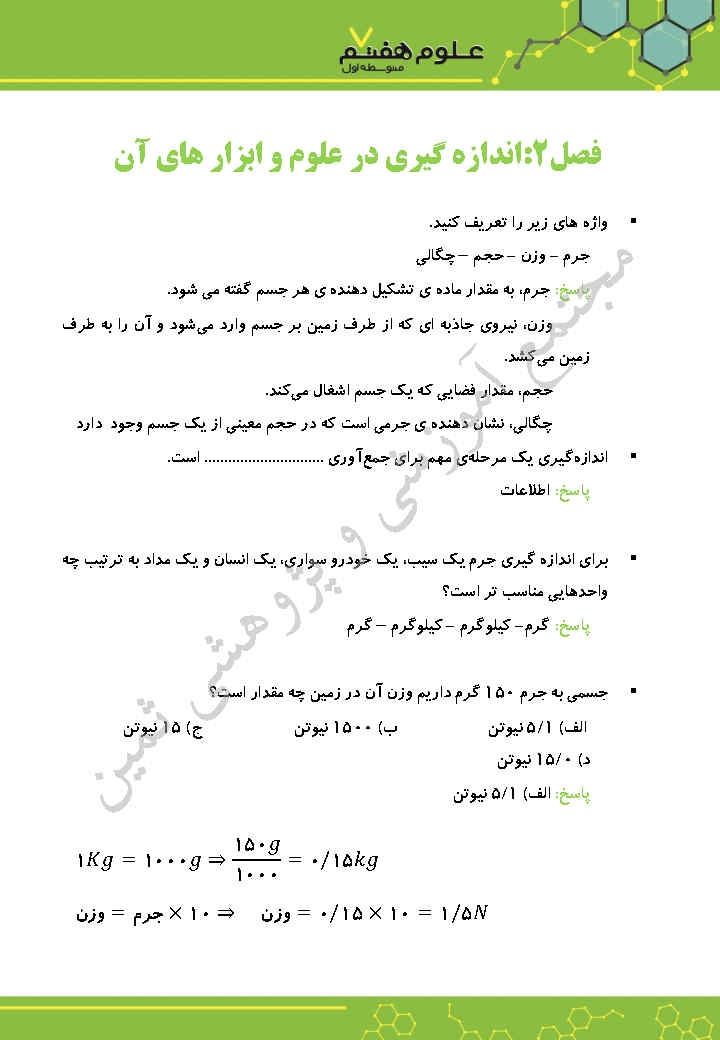 علوم هفتم ۷
متوسطه اول
فصل۲:اندازه گیری در علوم و ابزار های آن
▪ واژه های زیر را تعریف کنید.
جرم – وزن – حجم – چگالی
پاسخ: جرم، به مقدار ماده ی تشکیل دهنده ی هر جسم گفته می شود.
وزن، نیروی جاذبه ای که از طرف زمین بر جسم وارد می‌شود و آن را به طرف
زمین می‌کشد.
حجم، مقدار فضایی که یک جسم اشغال می‌کند.
چگالی، نشان دهنده ی جرمی است که در حجم معینی از یک جسم وجود دارد
▪ اندازه‌گیری یک مرحله‌ی مهم برای جمع‌آوری .............................. است.
پاسخ: اطلاعات
▪ برای اندازه گیری جرم یک سیب، یک خودرو سواری، یک انسان و یک مداد به ترتیب چه
واحدهایی مناسب تر است؟
پاسخ: گرم- کیلوگرم – کیلوگرم – گرم
▪ جسمی به جرم ۱۵۰ گرم داریم وزن آن در زمین چه مقدار است؟
الف) ۵/۱ نیوتن ب) ۱۵۰۰ نیوتن ج) ۱۵ نیوتن
د) ۱۵/۰ نیوتن
پاسخ: الف) ۵/۱ نیوتن
۱Kg = ۱۰۰۰g ⇒ ۱۵۰g/۱۰۰۰ = ۰/۱۵kg
وزن = جرم × ۱۰ ⇒ وزن = ۰/۱۵ × ۱۰ = ۱/۵N
مجتمع آموزشی و پژوهشی ثمین